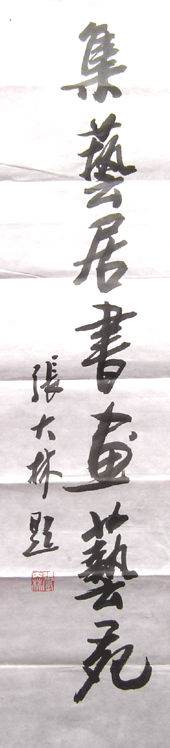 集藝居書畫藝苑
張大林題